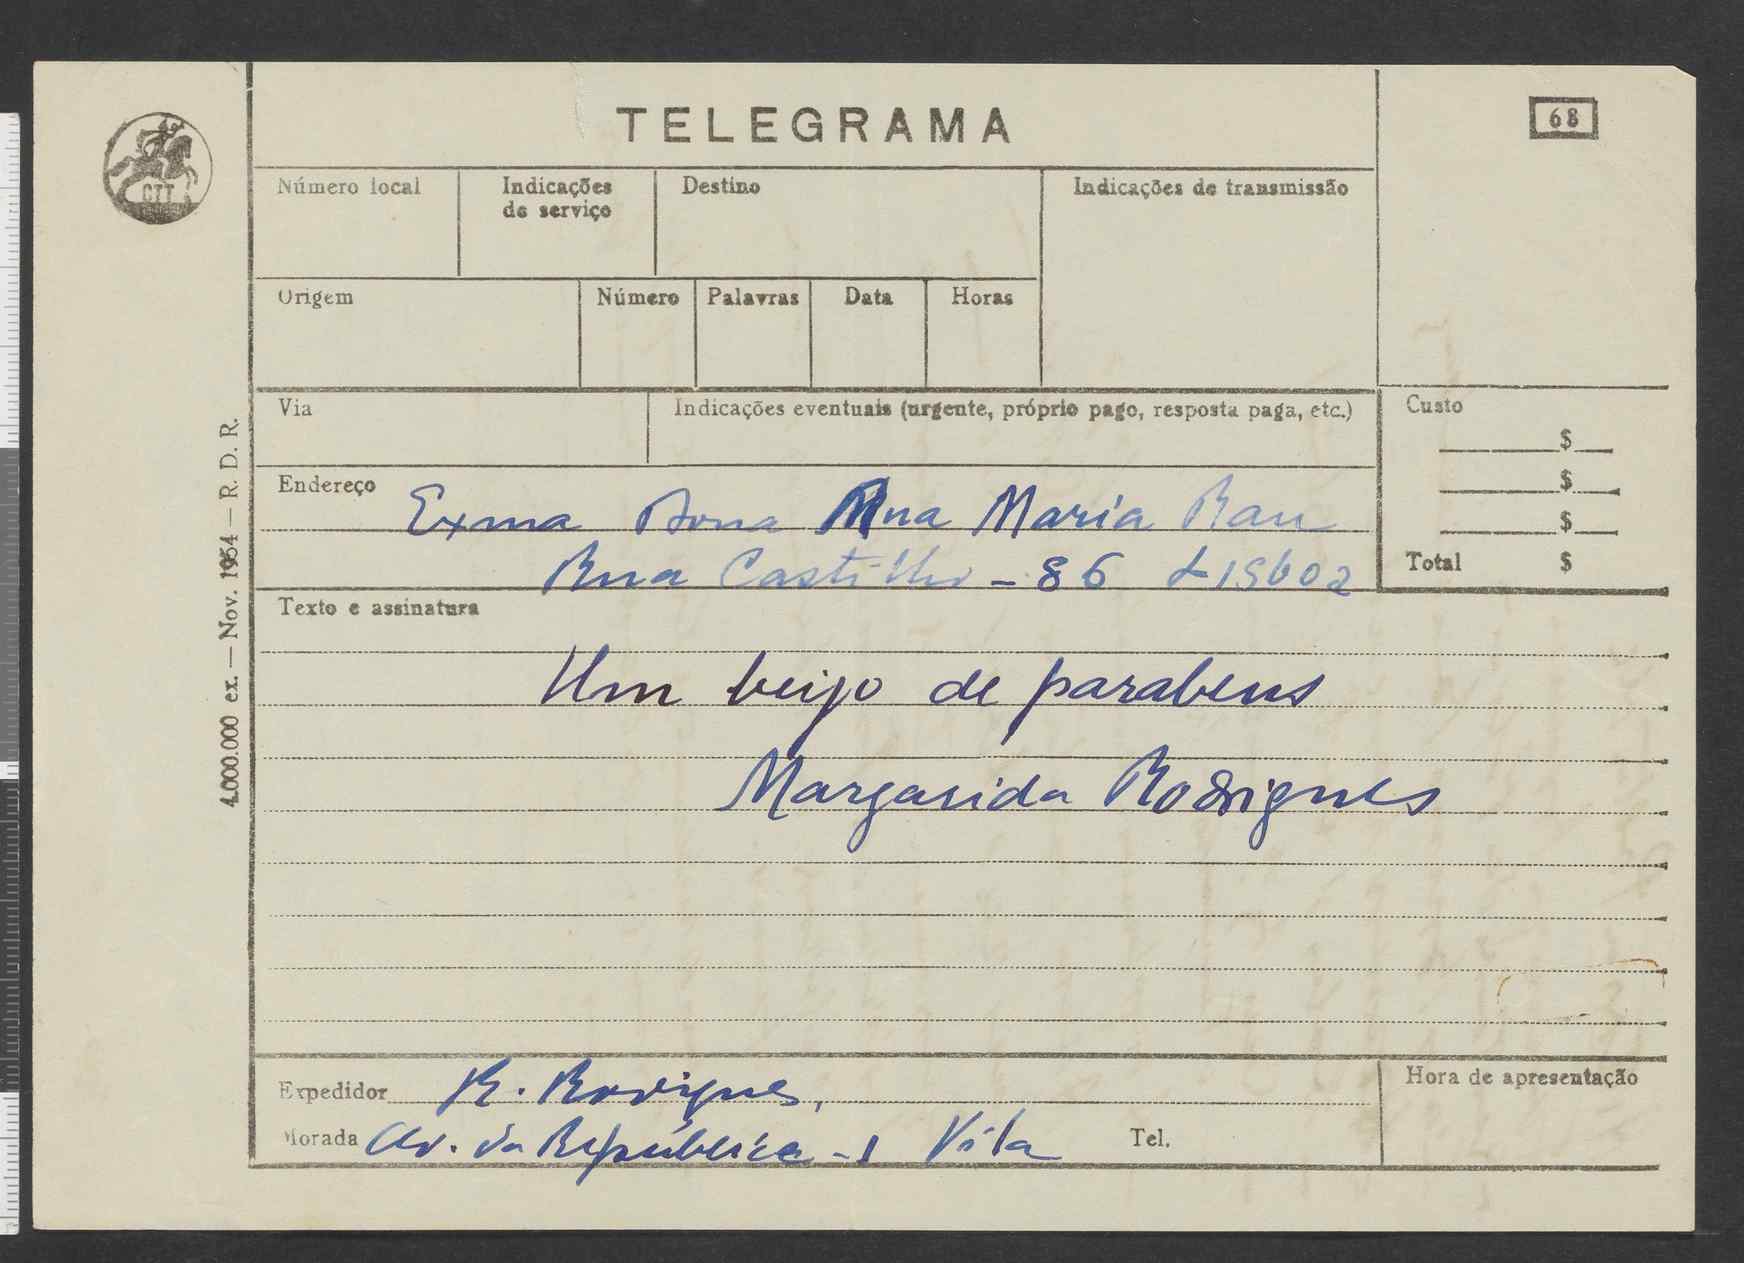 CTT
TELEGRAMA
68
Número local
Indicações
de serviço
Destino
Indicações de transmissão
Origem
Número
Palavras
Data
Horas
Via
Indicações eventuais (urgente, próprio pago, resposta paga, etc.)
Custo
$
$
$
Total $
Endereço Exma Dona Ana Maria Rau
Rua Castilho - 86 Lisboa
Texto e assinatura
Um beijo de parabens
Margarida Rodrigues
Expedidor R. Rodrigues,
Morada Av. da República - 1 Vila Tel.
Hora de apresentação
4.000.000 ex. — Nov. 1954 — R. D. R.